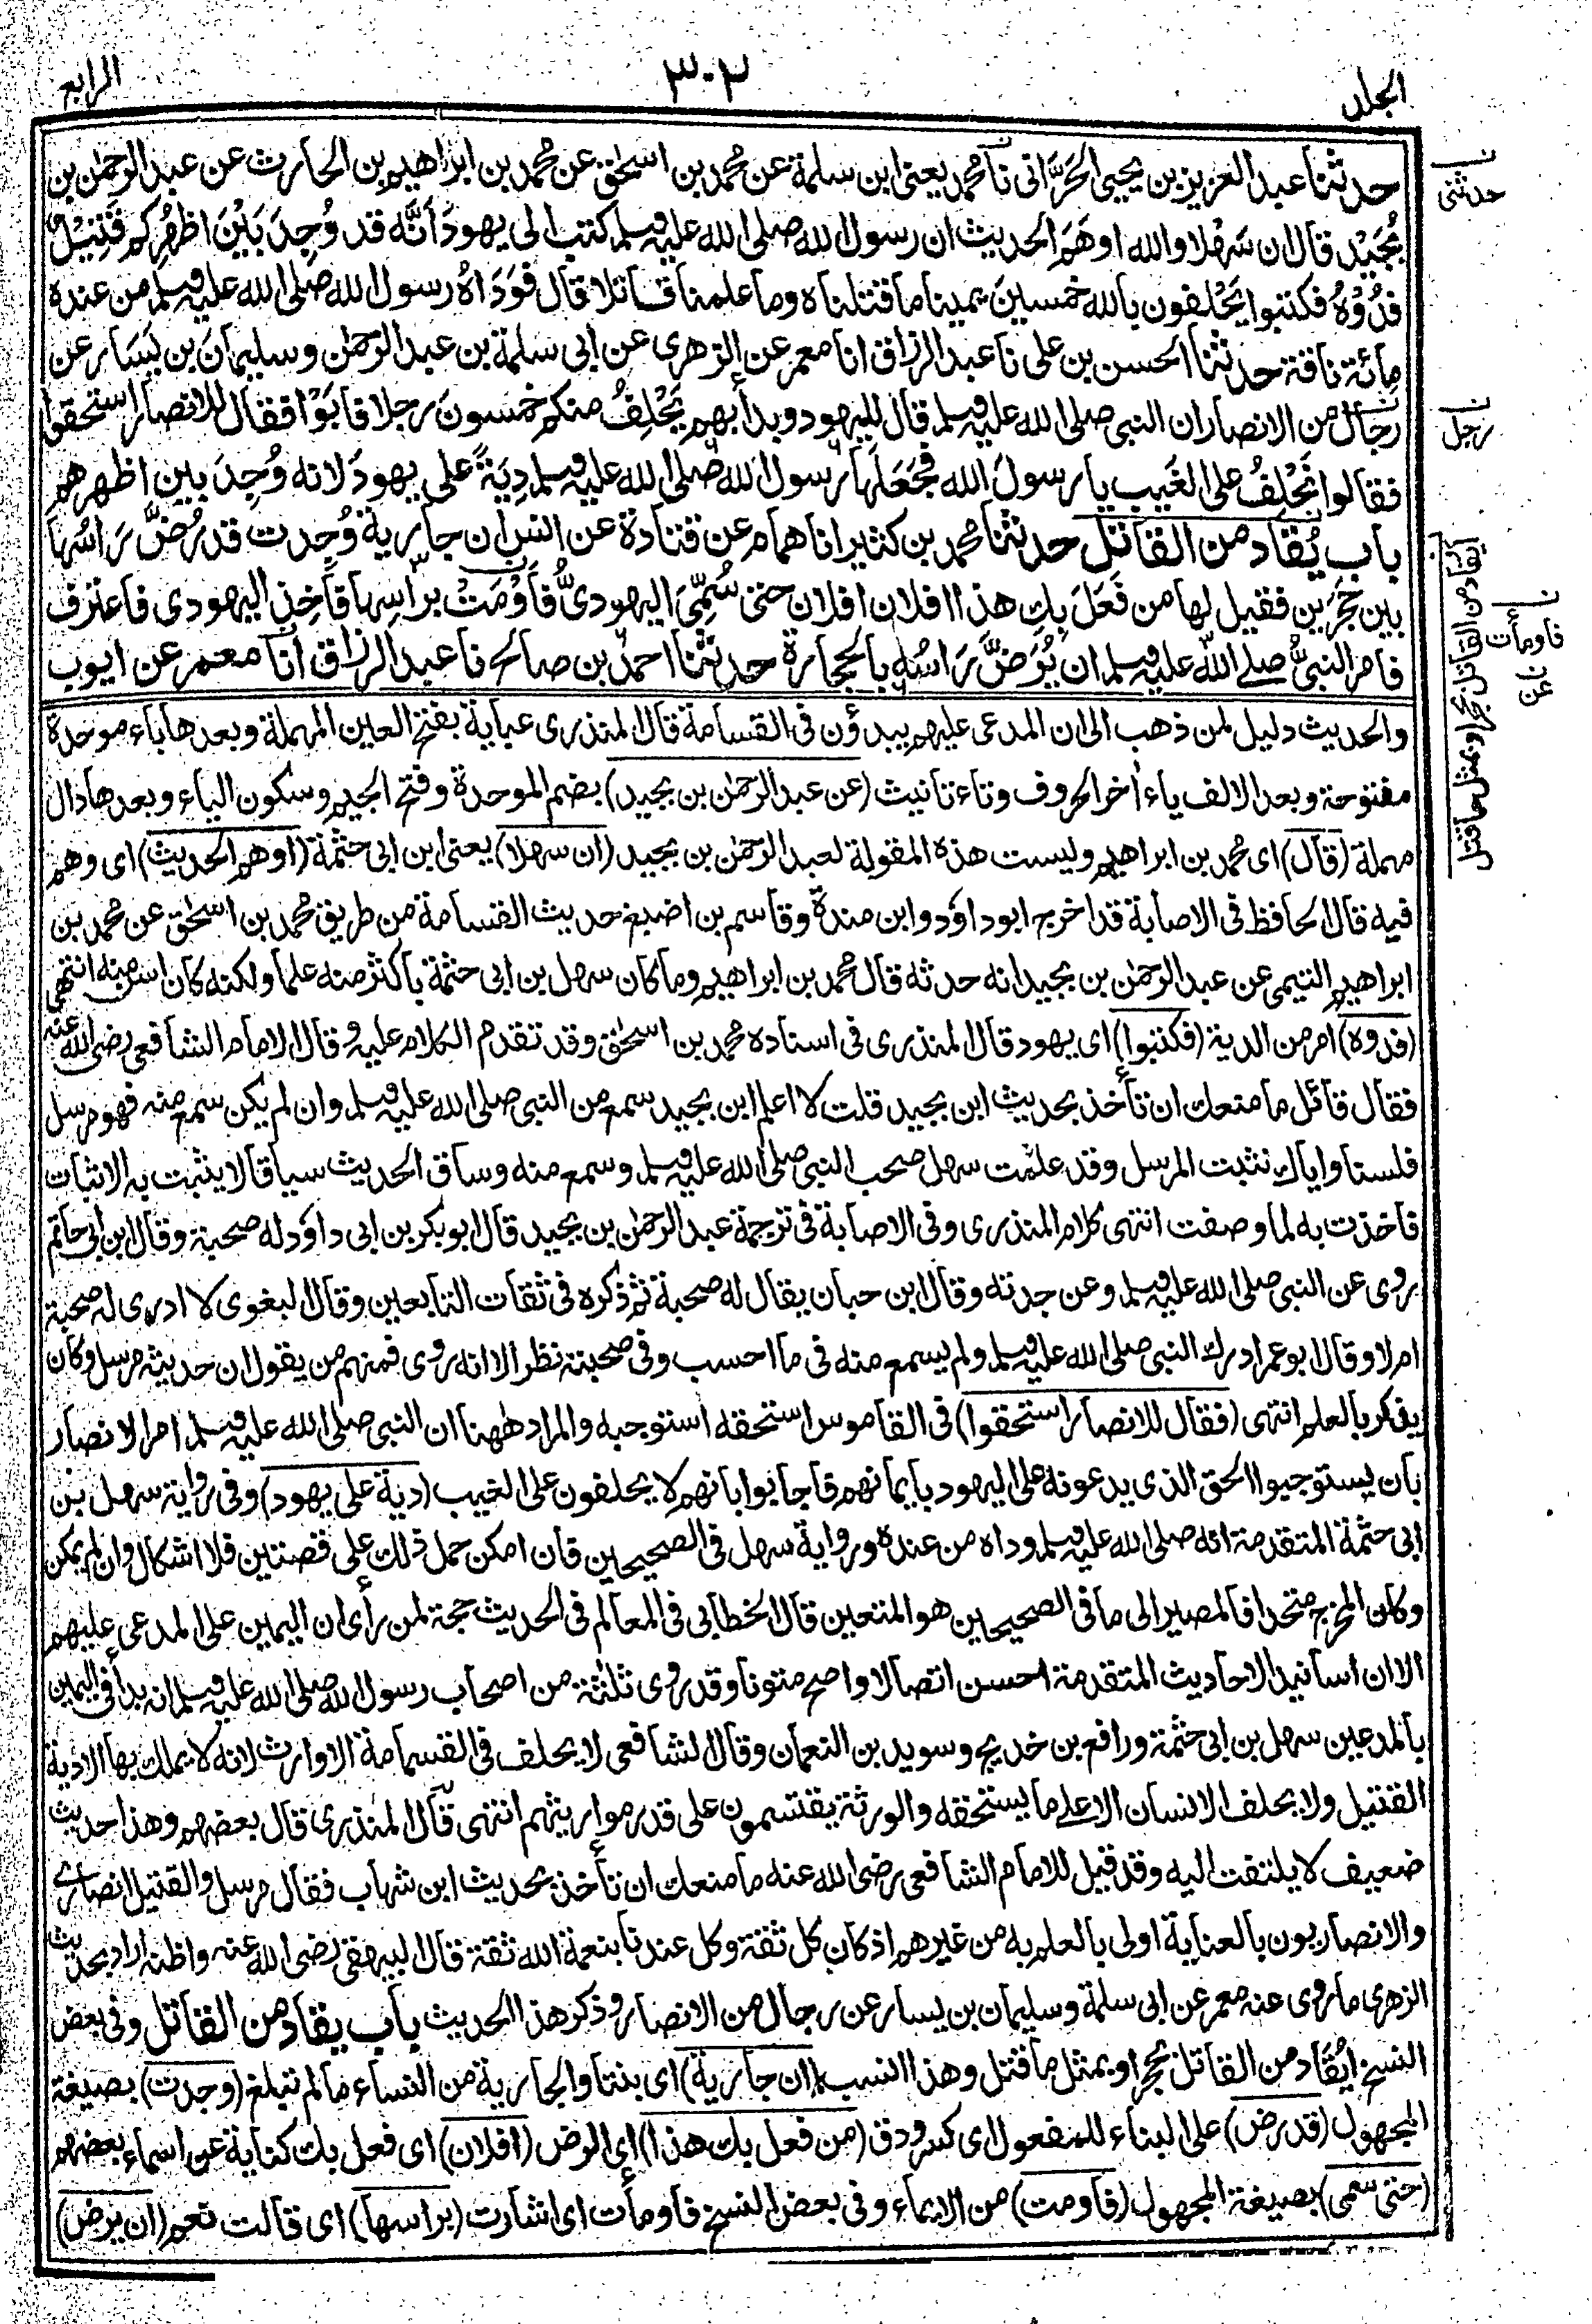 الجلد
٣٠٢
الرابع
حدثنا عبد العزيز بن يحيى الحَرَّانى نا محمد يعنى ابن سلمة عن محمد بن اسحٰق عن محمد بن ابراهيم بن الحارث عن عبد الرحمٰن بن
بُجَيْد قال ان سَهْلا والله اوهَمَ الحديث ان رسول الله صلى الله عليه وسلم كتب الى يهودَ انَّه قد وُجِدَ بَيْنَ اظهُرِكم قَتِيْلٌ
فَدُوْهُ فكتبوا يَحْلفون بالله خمسينَ يمينا ما قتلناه وما علمنا قاتلا قال فَوَدَاهُ رسول الله صلى الله عليه وسلم من عنده
مِائة ناقة حدثنا الحسن بن على نا عبد الرزاق انا معمر عن الزهرى عن ابى سلمة بن عبد الرحمٰن وسليمان بن يَسَار عن
رجال من الانصار ان النبى صلى الله عليه وسلم قال لليهود وبدأ بهم يَحْلِفُ منكم خمسونَ رجلا فابَوْا فقال للانصار استحقوا
فقالوا نَحْلِفُ على الغَيب يا رسولَ الله فجَعَلَها رسول الله صلى الله عليه وسلم دِيَةً على يهودَ لانه وُجِدَ بين اظهرهم
باب يُقَاد من القاتل حدثنا محمد بن كثير انا همام عن قتادة عن انس ان جارية وُجِدت قد رُضَّ رَاسُها
بين حَجَرَين فقيل لها من فَعَلَ بِكِ هذا افلان افلان حتى سُمِّىَ اليهودىُّ فَاَوْمَتْ براسِها فاُخِذ اليهودى فاعترف
فامر النبىُّ صلى الله عليه وسلم ان يُرَضَّ رَاسُه بالحجارة حدثنا احمد بن صالح نا عبد الرزاق انا معمر عن ايوب
حدثنى
رجل
ايقاد من القاتل بحجر او بمثل ما قتل
فاومأت
عن
والحديث دليل لمن ذهب الى ان المدعى عليهم يبدؤن فى القسامة قال المنذرى عباية بفتح العين المهملة وبعدها باء موحدة
مفتوحة وبعد الالف ياء اٰخر الحروف وتاء تانيث (عن عبد الرحمٰن بن بجيد) بضم الموحدة وفتح الجيم وسكون الياء وبعدها دال
مهملة (قال) اى محمد بن ابراهيم وليست هذه المقولة لعبد الرحمٰن بن بجيد (ان سهلا) يعنى ابن ابى حثمة (اوهم الحديث) اى وهم
فيه قال الحافظ فى الاصابة قد اخرج ابو داؤد وابن مندة وقاسم بن اصبغ حديث القسامة من طريق محمد بن اسحٰق عن محمد بن
ابراهيم التيمى عن عبد الرحمٰن بن بجيد انه حدثه قال محمد بن ابراهيم وما كان سهل بن ابى حثمة باكثر منه علما ولكنه كان اسن منه انتهى
(فدوه) امر من الدية (فكتبوا) اى يهود قال المنذرى فى اسناده محمد بن اسحٰق وقد تقدم الكلام عليه وقال الامام الشافعى رضى الله عنه
فقال قائل ما منعك ان تأخذ بحديث ابن بجيد قلت لا اعلم ابن بجيد سمع من النبى صلى الله عليه وسلم وان لم يكن سمع منه فهو مرسل
فلسنا واياك نثبت المرسل وقد علمت سهل صحب النبى صلى الله عليه وسلم وسمع منه وساق الحديث سياقا لا يثبت به الاثبات
فاخذت به لما وصفت انتهى كلام المنذرى وفى الاصابة فى ترجمة عبد الرحمٰن بن بجيد قال ابو بكر بن ابى داؤد له صحبة وقال ابن ابى حاتم
روى عن النبى صلى الله عليه وسلم وعن جدته وقال ابن حبان يقال له صحبة ثم ذكره فى ثقات التابعين وقال البغوى لا ادرى له صحبة
ام لا وقال ابو عمر ادرك النبى صلى الله عليه وسلم ولم يسمع منه فى ما احسب وفى صحبته نظر الا انه روى فمنهم من يقول ان حديثه مرسل وكان
يذكر بالعلم انتهى (فقال للانصار استحقوا) فى القاموس استحقه استوجبه والمراد ههنا ان النبى صلى الله عليه وسلم امر الانصار
بان يستوجبوا الحق الذى يدعونه على اليهود بايمانهم فاجابوا بانهم لا يحلفون على الغيب (دية على يهود) وفى رواية سهل بن
ابى حثمة المتقدمة انه صلى الله عليه وسلم وداه من عنده ورواية سهل فى الصحيحين فان امكن حمل ذلك على قصتين فلا اشكال وان لم يمكن
وكان المخرج متحدا فالمصير الى ما فى الصحيحين هو المتعين قال الخطابى فى المعالم فى الحديث حجة لمن رأى ان اليمين على المدعى عليهم
الا ان اسانيد الاحاديث المتقدمة احسن اتصالا واصح متونا وقد روى ثلٰثة من اصحاب رسول الله صلى الله عليه وسلم انه بدأ فى اليمين
بالمدعين سهل بن ابى حثمة ورافع بن خديج وسويد بن النعمان وقال الشافعى لا يحلف فى القسامة الا وارث لانه لا يملك بها الا دية
القتيل ولا يحلف الانسان الا على ما يستحقه والورثة يقتسمون على قدر مواريثهم انتهى قال المنذرى قال بعضهم وهذا حديث
ضعيف لا يلتفت اليه وقد قيل للامام الشافعى رضى الله عنه ما منعك ان تأخذ بحديث ابن شهاب فقال مرسل والقتيل انصارى
والانصاريون بالعناية اولى بالعلم به من غيرهم اذ كان كل ثقة وكل عندنا بنعمة الله ثقة قال البيهقى رضى الله عنه واظنه اراد بحديث
الزهرى ما روى عنه معمر عن ابى سلمة وسليمان بن يسار عن رجال من الانصار وذكر هذا الحديث باب يقاد من القاتل وفى بعض
النسخ ايُقَاد من القاتل بحجر او بمثل ما قتل وهذا انسب (ان جارية) اى بنتا والجارية من النساء ما لم تبلغ (وجدت) بصيغة
المجهول (قد رض) على البناء للمفعول اى كسر ودق (من فعل بك هذا) اى الرض (افلان) اى فعل بك كناية عن اسماء بعضهم
(حتى سمى) بصيغة المجهول (فاومت) من الايماء وفى بعض النسخ فاومأت اى اشارت (براسها) اى قالت نعم (ان يرض)